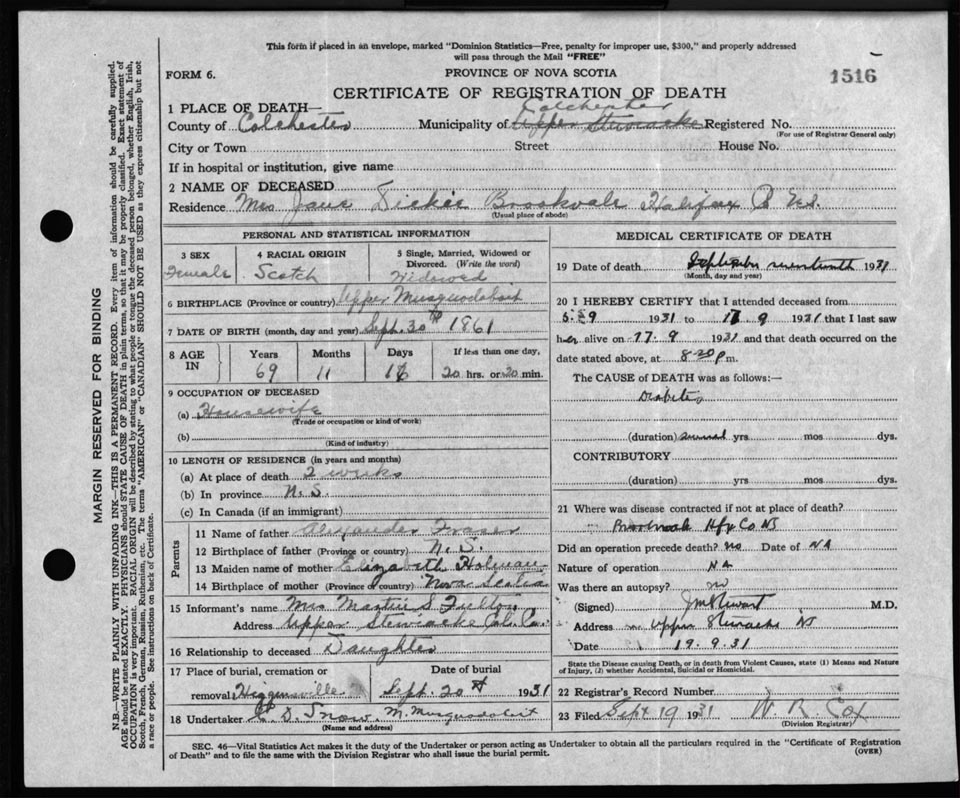 This form if placed in an envelope, marked "Dominion Statistics—Free, penalty for improper use, $300," and properly addressed
will pass through the Mail "FREE"
FORM 6.
PROVINCE OF NOVA SCOTIA
1516
CERTIFICATE OF REGISTRATION OF DEATH
1 PLACE OF DEATH—
Colchester
County of Colchester Municipality of Upper Stewiacke Registered No.
(For use of Registrar General only)
City or Town Street House No.
If in hospital or institution, give name
2 NAME OF DECEASED
Residence Mrs Jane Dickie Brookvale Halifax Co N.S.
(Usual place of abode)
PERSONAL AND STATISTICAL INFORMATION
3 SEX 4 RACIAL ORIGIN 5 Single, Married, Widowed or
Divorced. (Write the word)
Female Scotch Widowed
6 BIRTHPLACE (Province or country) Upper Musquodoboit
7 DATE OF BIRTH (month, day and year) Sept. 30th 1861
8 AGE IN Years Months Days If less than one day,
69 11 20 hrs. or 30 min.
9 OCCUPATION OF DECEASED
(a) Housewife
(Trade or occupation or kind of work)
(b)
(Kind of industry)
10 LENGTH OF RESIDENCE (in years and months)
(a) At place of death 2 weeks
(b) In province N.S.
(c) In Canada (if an immigrant)
Parents
11 Name of father Alexander Fraser
12 Birthplace of father (Province or country) N.S.
13 Maiden name of mother Elizabeth Holman
14 Birthplace of mother (Province or country) Nova Scotia
15 Informant's name Mrs Martin S Fulton
Address Upper Stewiacke Col. Co.
16 Relationship to deceased Daughter
17 Place of burial, cremation or Date of burial
removal Higginsville Sept. 20th 1931
18 Undertaker Snow M. Musquodoboit
(Name and address)
MEDICAL CERTIFICATE OF DEATH
19 Date of death September seventeenth 1931
(Month, day and year)
20 I HEREBY CERTIFY that I attended deceased from
9 1931 to 17 9 1931 that I last saw
her alive on 17.9 1931 and that death occurred on the
date stated above, at 8.20 p.m.
The CAUSE of DEATH was as follows:—
Diabetes
(duration) several yrs mos dys.
CONTRIBUTORY
(duration) yrs mos dys.
21 Where was disease contracted if not at place of death?
Hfx Co NS
Did an operation precede death? no Date of NA
Nature of operation NA
Was there an autopsy? no
(Signed) JM Stewart M.D.
Address Upper Stewiacke NS
Date 19.9.31
State the Disease causing Death, or in death from Violent Causes, state (1) Means and Nature
of Injury, (2) whether Accidental, Suicidal or Homicidal.
22 Registrar's Record Number
23 Filed Sept 19 1931 W. R. Cox
(Division Registrar)
SEC. 46—Vital Statistics Act makes it the duty of the Undertaker or person acting as Undertaker to obtain all the particulars required in the "Certificate of Registration
of Death" and to file the same with the Division Registrar who shall issue the burial permit.
(OVER)
MARGIN RESERVED FOR BINDING
N.B.—WRITE PLAINLY WITH UNFADING INK—THIS IS A PERMANENT RECORD. Every item of information should be carefully supplied.
AGE should be stated EXACTLY. PHYSICIANS should STATE CAUSE OF DEATH in plain terms, so that it may be properly classified. Exact statement of
OCCUPATION is very important. RACIAL ORIGIN will be described by stating to what people or tongue the deceased person belonged, whether English, Irish,
Scotch, French, German, Russian, Ruthenian, etc. The terms "AMERICAN" or "CANADIAN" SHOULD NOT BE USED as they express citizenship but not
a race or people. See instructions on back of Certificate.